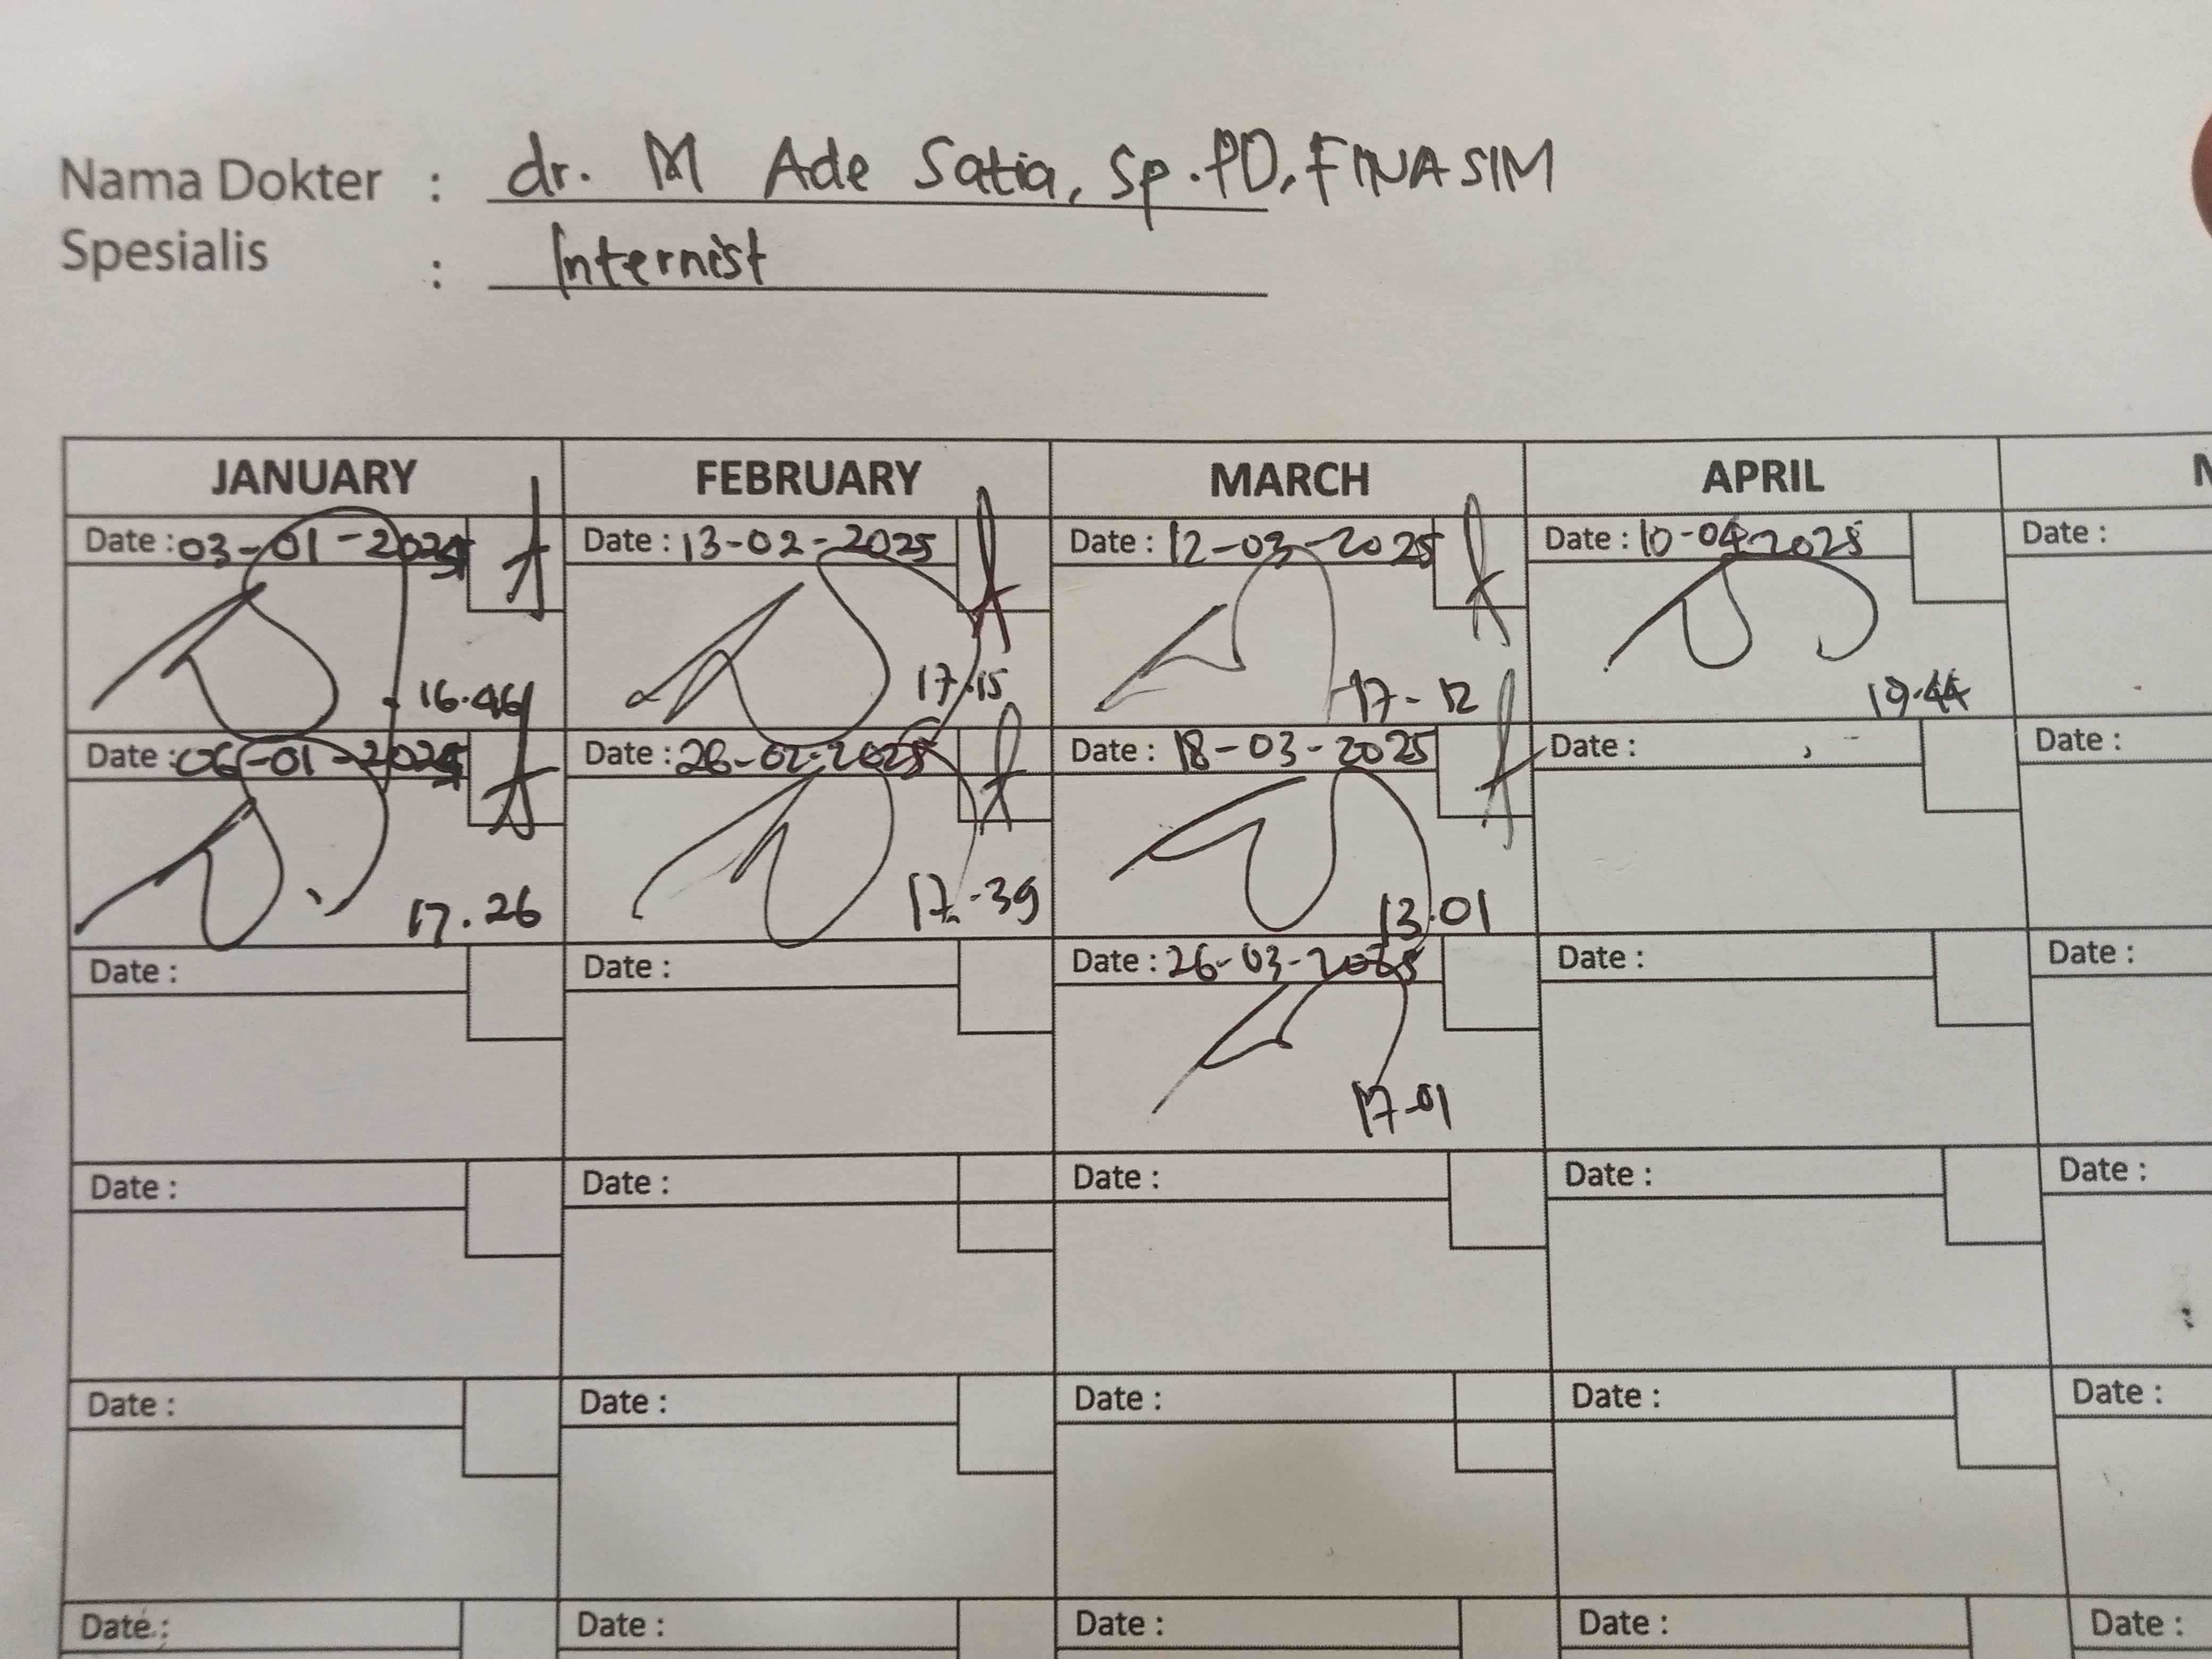 Nama Dokter : dr. M Ade Satia, Sp.PD, FINASIM
Spesialis : Internist
JANUARY FEBRUARY MARCH APRIL
Date : 03-01-2025 Date : 13-02-2025 Date : 12-03-2025 Date : 10-04-2025 Date :
16.46 17.15 17-12 19.44
Date : 06-01-2025 Date : 26-02-2025 Date : 18-03-2025 Date : Date :
17.26 17.-39 13.01
Date : Date : Date : 26-03-2025 Date : Date :
17-01
Date : Date : Date : Date : Date :
Date : Date : Date : Date : Date :
Date : Date : Date : Date : Date :